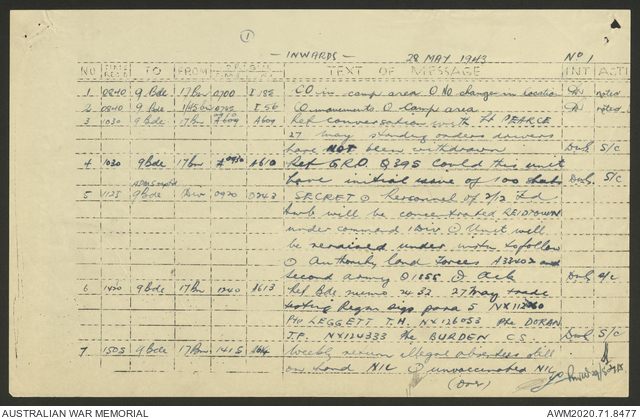 1
- INWARDS - 28 MAY 1943 No 1
NO TIME RECD TO FROM TEXT OF MESSAGE INT ACT
1 0840 9 Bde 17 Bn 0700 I 55 CO in camp area O No change in location noted
2 0840 9 Bde 0755 I 56 O movements O Camp area noted
3 1030 9 Bde 17 Bn A609 Ref conversation with Lt PEARCE
27 may standing orders drivers
have NOT been withdrawn S/C
4 1030 9 Bde 17 Bn A610 Ref G.R.O. Q395 Could this unit
have initial issue of 100 S/C
5 1125 9 Bde Div 0920 0243 SECRET O Personnel of 2/2 Fd
will be concentrated REIDTOWN
under command 1 Div O Unit will
be under to follow
O Authority Land Forces A33402 and
Second Army O 1855 O Ack
6 1420 9 Bde 17 Bn 1240 A613 Ref Bde memo 2432 27 May trade
testing Regan sigs para 5
Pte LEGGETT T.H. NX126053 Pte DORAN
J.P. NX124333 Pte BURDEN C.S. S/C
7 1505 9 Bde 17 Bn 1415 Weekly return illegal absentees still
on hand NIL O unvaccinated NIL
(Over)
AUSTRALIAN WAR MEMORIAL AWM2020.71.8477